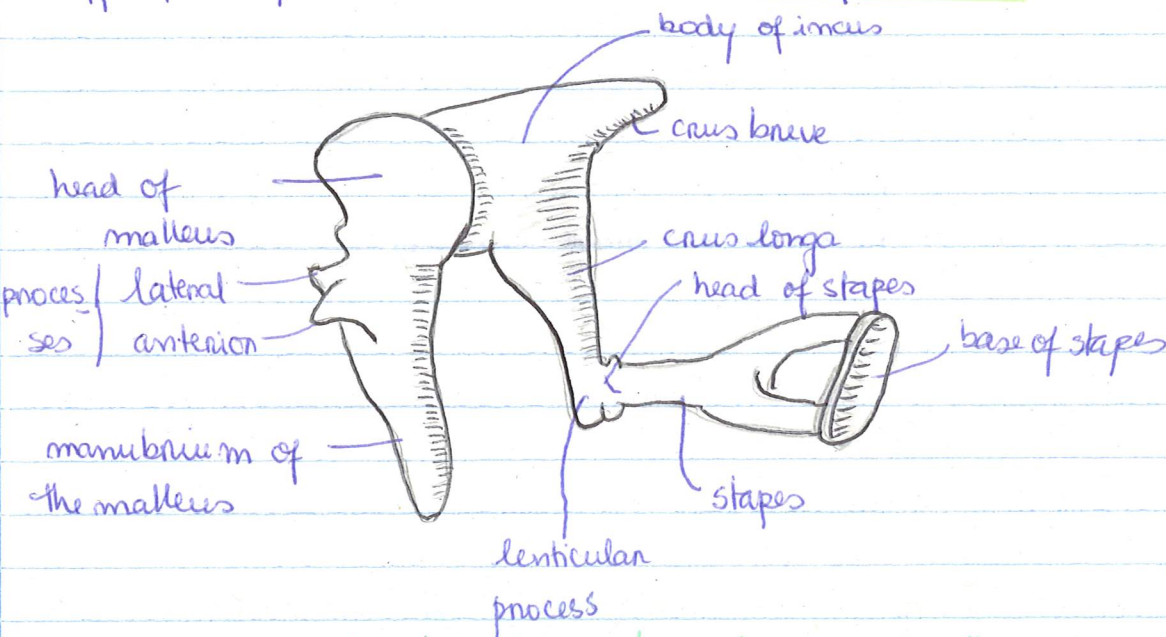 body of incus
crus breve
head of
malleus
crus longa
proces
ses
lateral
anterior
head of stapes
base of stapes
manubrium of
the malleus
stapes
lenticular
process